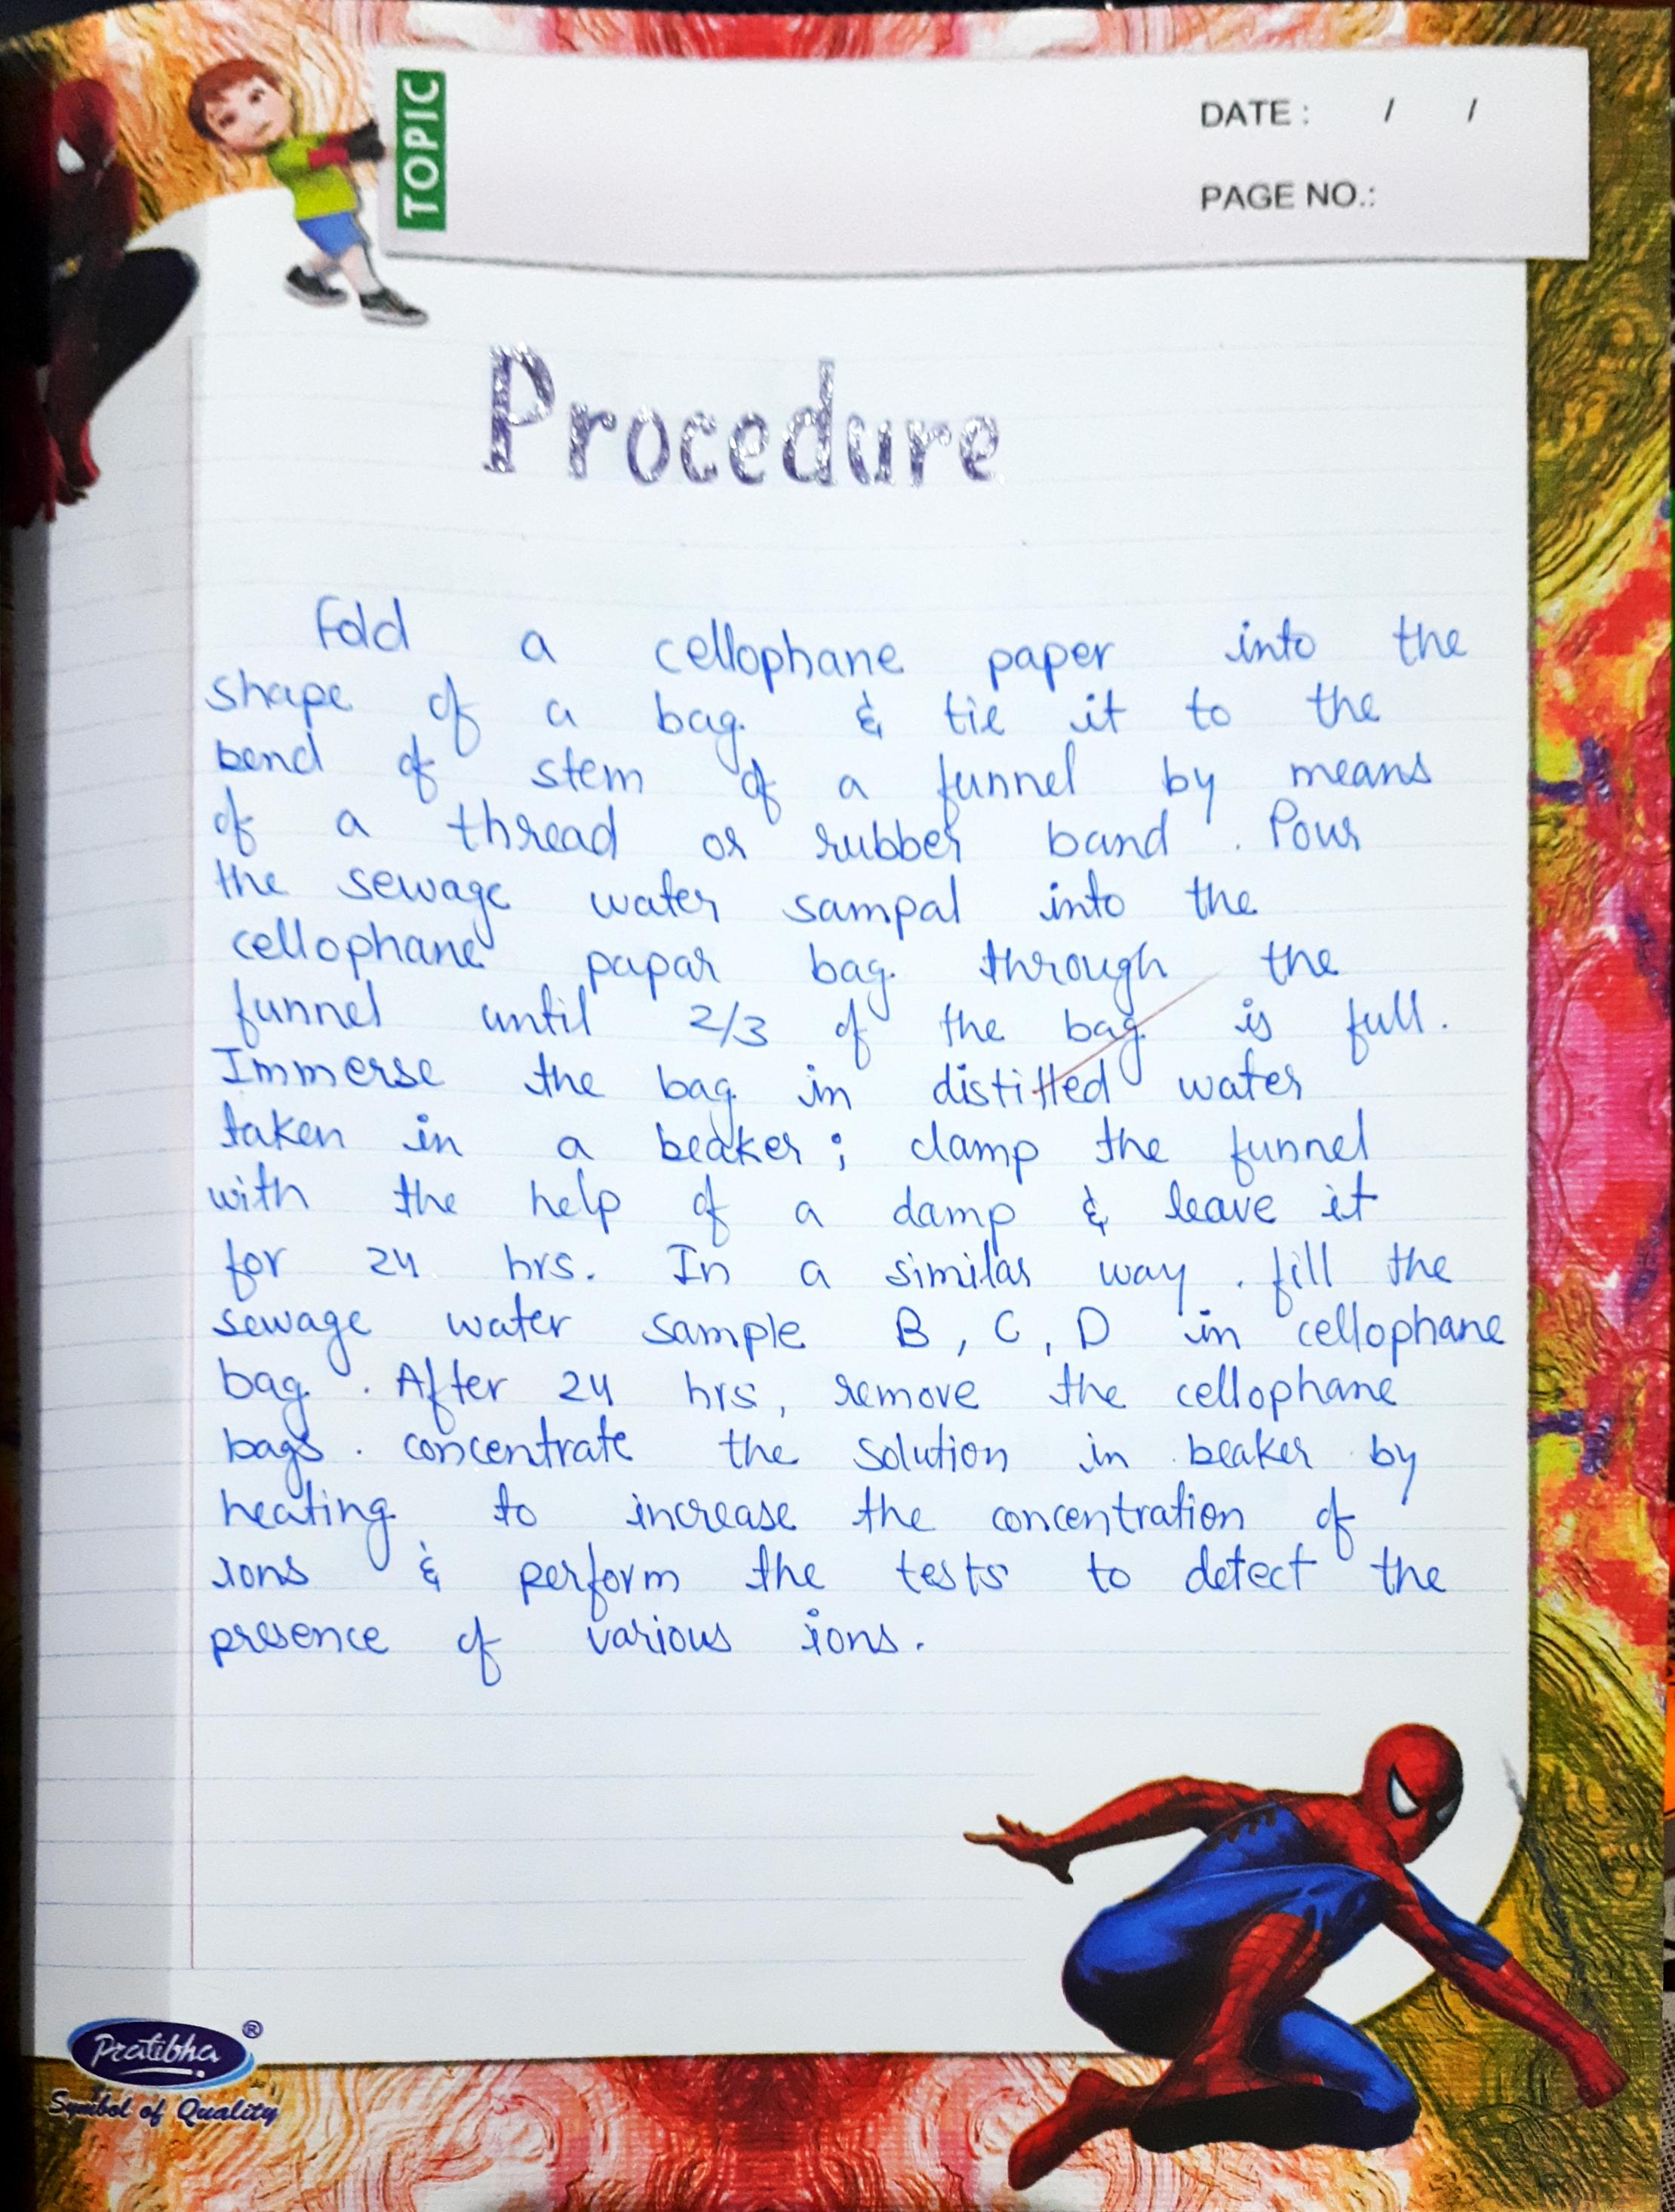 TOPIC
DATE : / /
PAGE NO.:
Procedure
Fold a cellophane paper into the
shape of a bag & tie it to the
bend of stem of a funnel by means
of a thread or rubber band . Pour
the sewage water sampal into the
cellophane papar bag through the
funnel until 2/3 of the bag is full.
Immerse the bag in distitted water
taken in a beaker ; clamp the funnel
with the help of a damp & leave it
for 24 hrs. In a similar way . fill the
sewage water sample B , C , D in cellophane
bag . After 24 hrs, remove the cellophane
bags . concentrate the solution in beaker by
heating to increase the concentration of
ions & perform the tests to detect the
presence of various ions.
Pratibha ®
Symbol of Quality